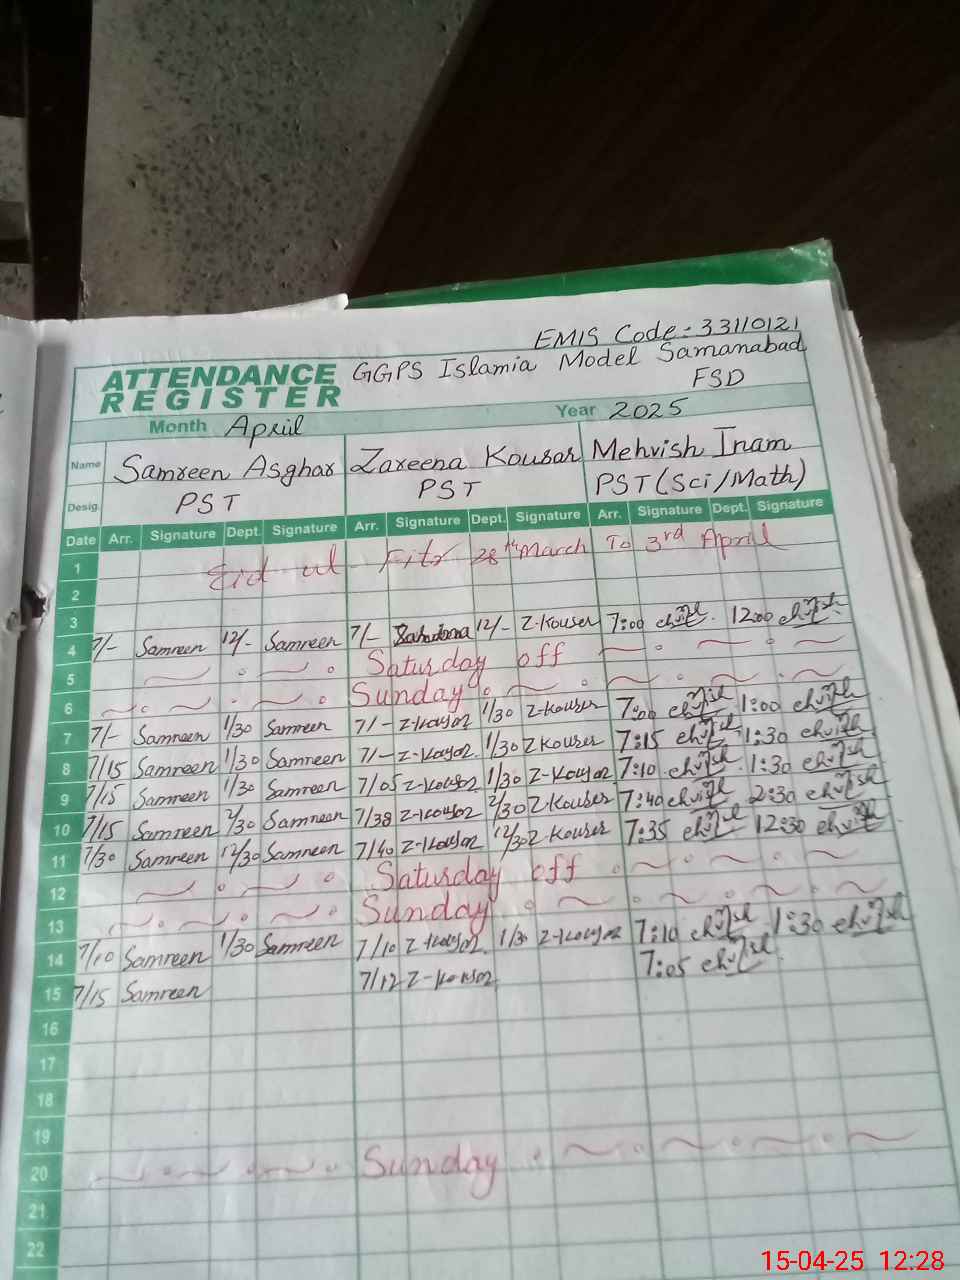 EMIS Code:- 33110121
ATTENDANCE REGISTER GGPS Islamia Model Samanabad
FSD
Month April Year 2025
Name Samreen Asghar Zareena Kousar Mehvish Inam
Desig. PST PST PST (Sci/Math)
Date Arr. Signature Dept. Signature Arr. Signature Dept. Signature Arr. Signature Dept. Signature
1 Eid ul Fitr 28th March To 3rd April
2
3
4 7/- Samreen 12/- Samreen 7/- 12/- Z-Kouser 7:00 12:00
5 Saturday off
6 Sunday
7 7/- Samreen 1/30 Samreen 7/- Z-Kousar 1/30 Z-Kouser 7:00 1:00
8 7/15 Samreen 1/30 Samreen 7/- Z-Kousar 1/30 Z Kouser 7:15 1:30
9 7/15 Samreen 1/30 Samreen 7/05 Z-Kousar 1/30 Z-Kousar 7:10 1:30
10 7/15 Samreen 2/30 Samreen 7/38 Z-Kousar 2/30 Z-Kouser 7:40 2:30
11 7/30 Samreen 12/30 Samreen 7/40 Z-Kousar 12/30 Z-Kouser 7:35 12:30
12 Saturday off
13 Sunday
14 7/10 Samreen 1/30 Samreen 7/10 Z-Kousar 1/30 Z-Kousar 7:10 1:30
15 7/15 Samreen 7/12 Z-Kousar 7:05
16
17
18
19
20 Sunday
21
22
15-04-25 12:28